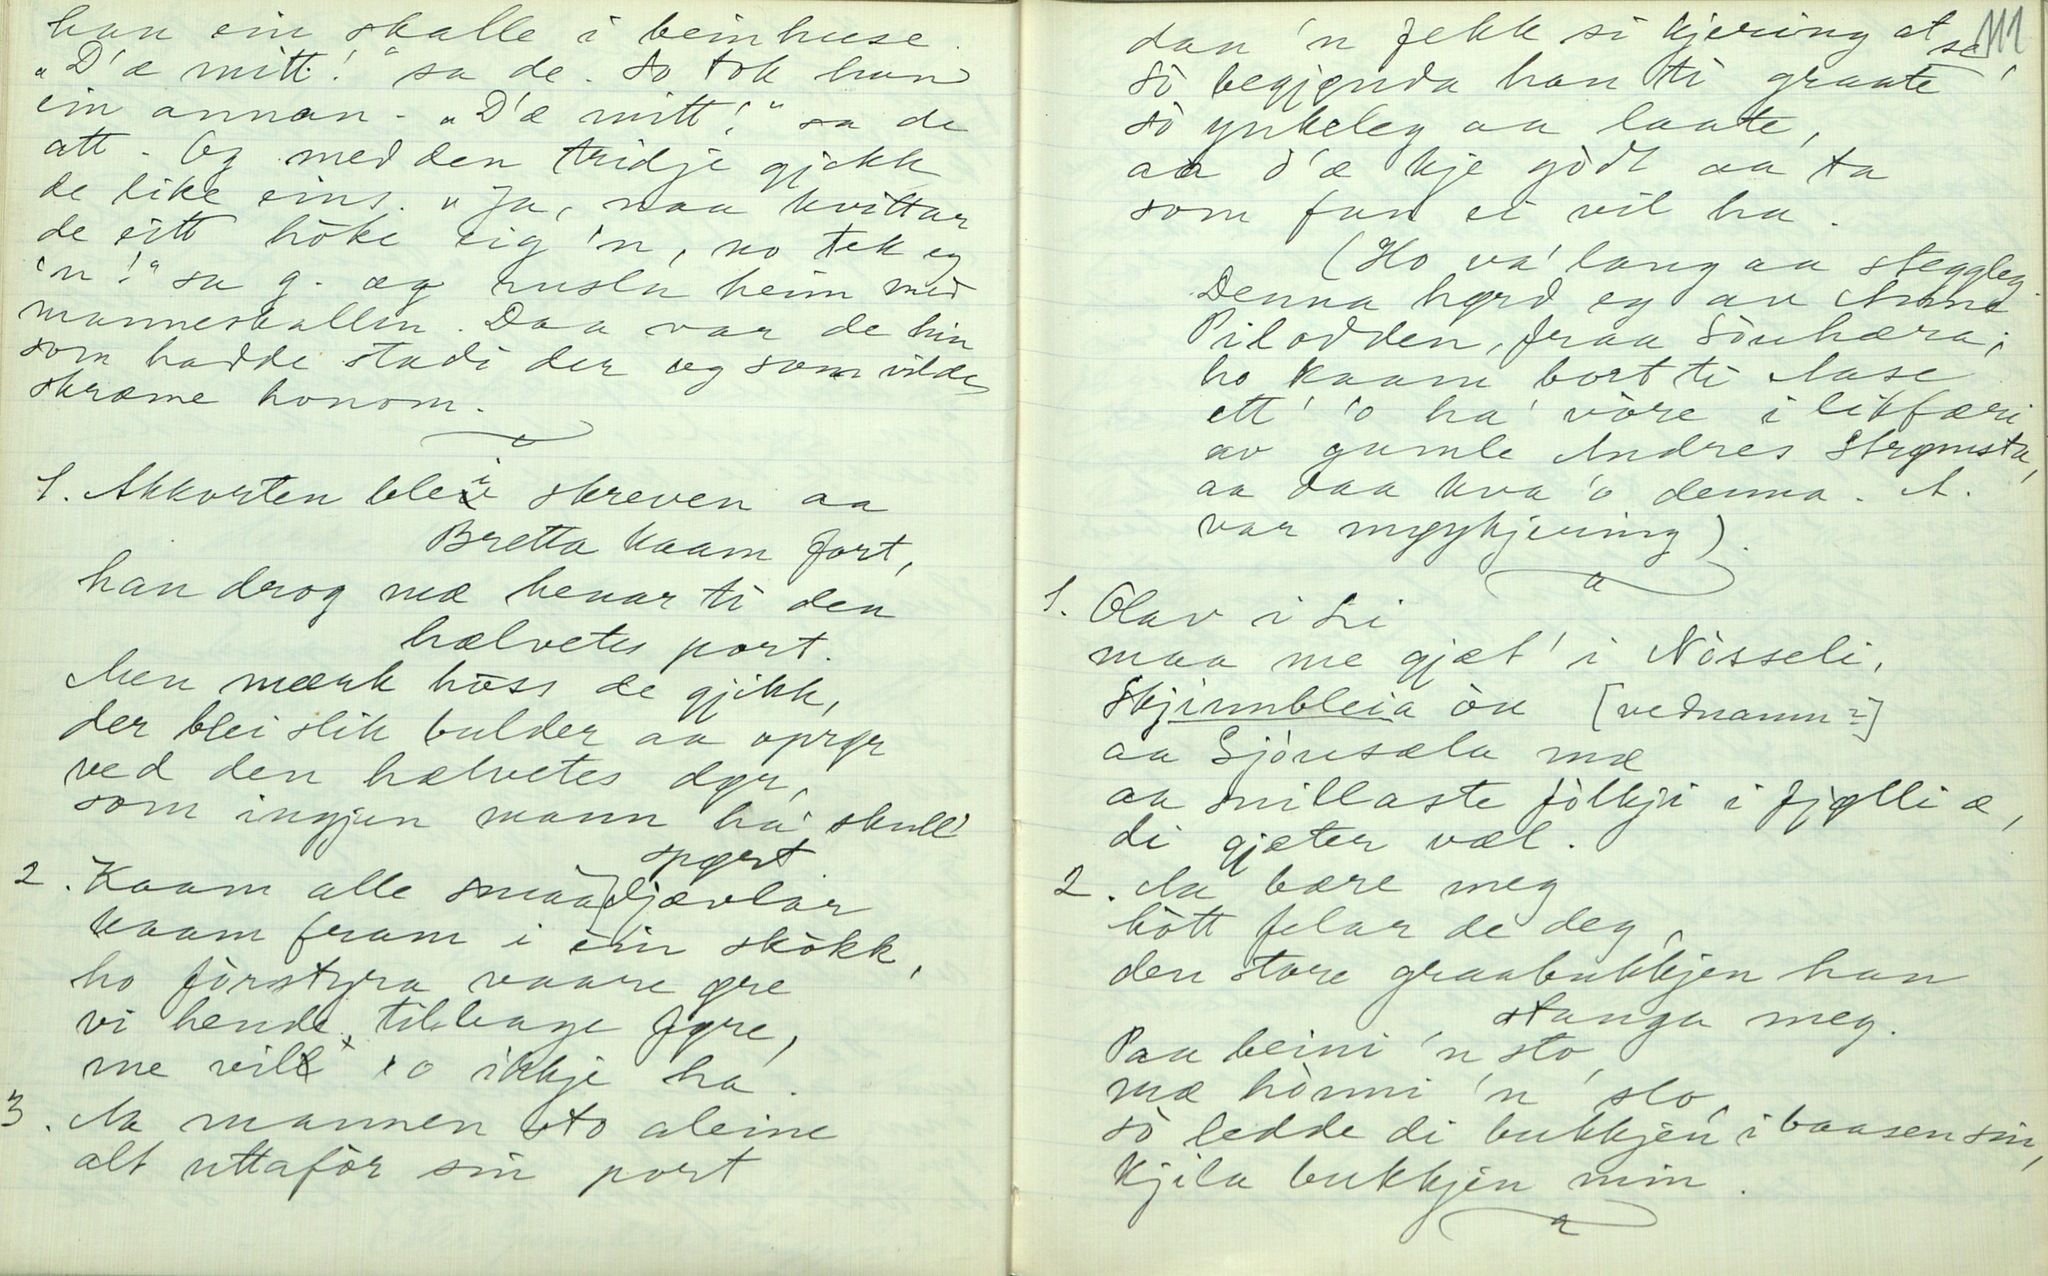 han ein skalle i beinhuse.
„D'æ mitt!" sa de. So tok han
ein annan. „D'æ mitt!" sa de
att. Og med den tridje gjekk
de like eins. „Ja, naa kvittar
de eitt höke eig 'n, no tek eg
'n!" sa g. og rusla heim med
manneskallen. Daa var de hin
som hadde stadi der og som vilde
skræme honom.
1. Akkorten blei skreven aa
Bretta kaam fort,
han drog mæ henar ti den
hælvetes port.
Men mærk høss de gjikk,
der blei slik bulder aa oprør
ved den hælvetes dør,
som ingjen mann ha' skull'
spørt
2. Kaam alle smaadjævlar
kaam fram i ein skökk,
ho förstyra vaare øre
vi hende tilbage føre,
me vill 'o ikkje ha.
3. Aa mannen sto aleine
alt uttaför sin port
111
daa 'n fekk si kjering at se,
sò begjynda han ti graate
sò ynkeleg aa laate,
aa d'æ kje gòdt aa ta
som fan ei vil ha.
(Ho va' lang aa steggleg.
Denna høyrd eg av Anne
Pilodden, fraa Sòuhæra;
ho kaam bort ti Aase
ett' 'o ha' vòre i likfæri
av gamle Andres Strømsta,
aa daa kva 'o denna. A.
var møykjering).
1. Olav i Li
maa me gjæt' i Nòsseli,
Skjimbleia òu [vednamn?]
aa Sjòusæla mæ
aa snillaste fòlkji i fjølli æ,
di gjæter væl.
2. Aa bære meg
hòtt felar de deg,
den store graabukkjen han
stanga meg.
Paa beini 'n sto,
mæ hònni 'n slo,
sò ledde di bukkjen i baasen sin,
Kjila bukkjen min.